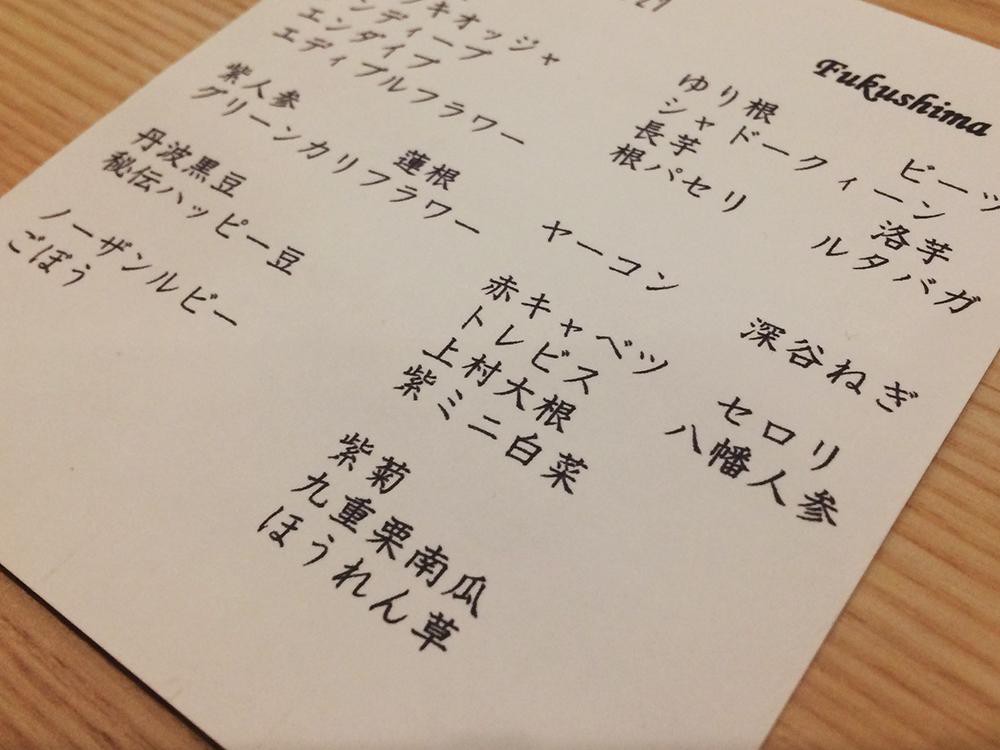 27
キオッジャ
ンディーブ
エンダイブ
エディブルフラワー
紫人参
グリーンカリフラワー
蓮根
丹波黒豆
秘伝ハッピー豆
ノーザンルビー
ごぼう
Fukushima
ゆり根
シャドークィーン
長芋
根パセリ
ビーツ
洛芋
ルタバガ
ヤーコン
赤キャベツ
トレビス
上村大根
紫ミニ白菜
深谷ねぎ
セロリ
八幡人参
紫菊
九重栗南瓜
ほうれん草